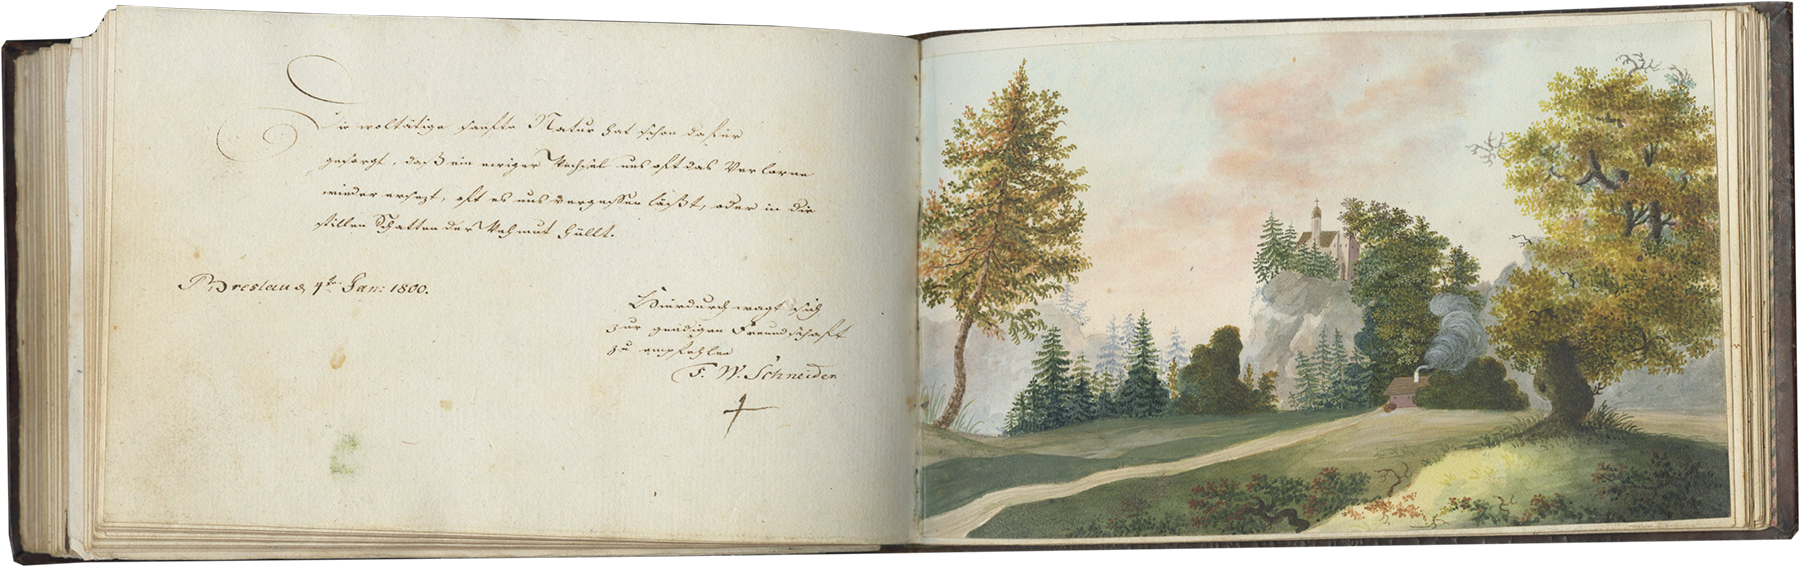 Die woltätige sanfte Natur hat schon dafür
gesorgt, daß ein ewiger Wechsel uns oft das Verlorne
wieder ersezt, oft es uns vergessen läßt, oder in die
stillen Schatten der Wehmut hüllt.
Breslau d 4te Jan: 1800.
Hierdurch wagt sich
zur gnädigen Freundschaft
zu empfehlen
F. W. Schneider